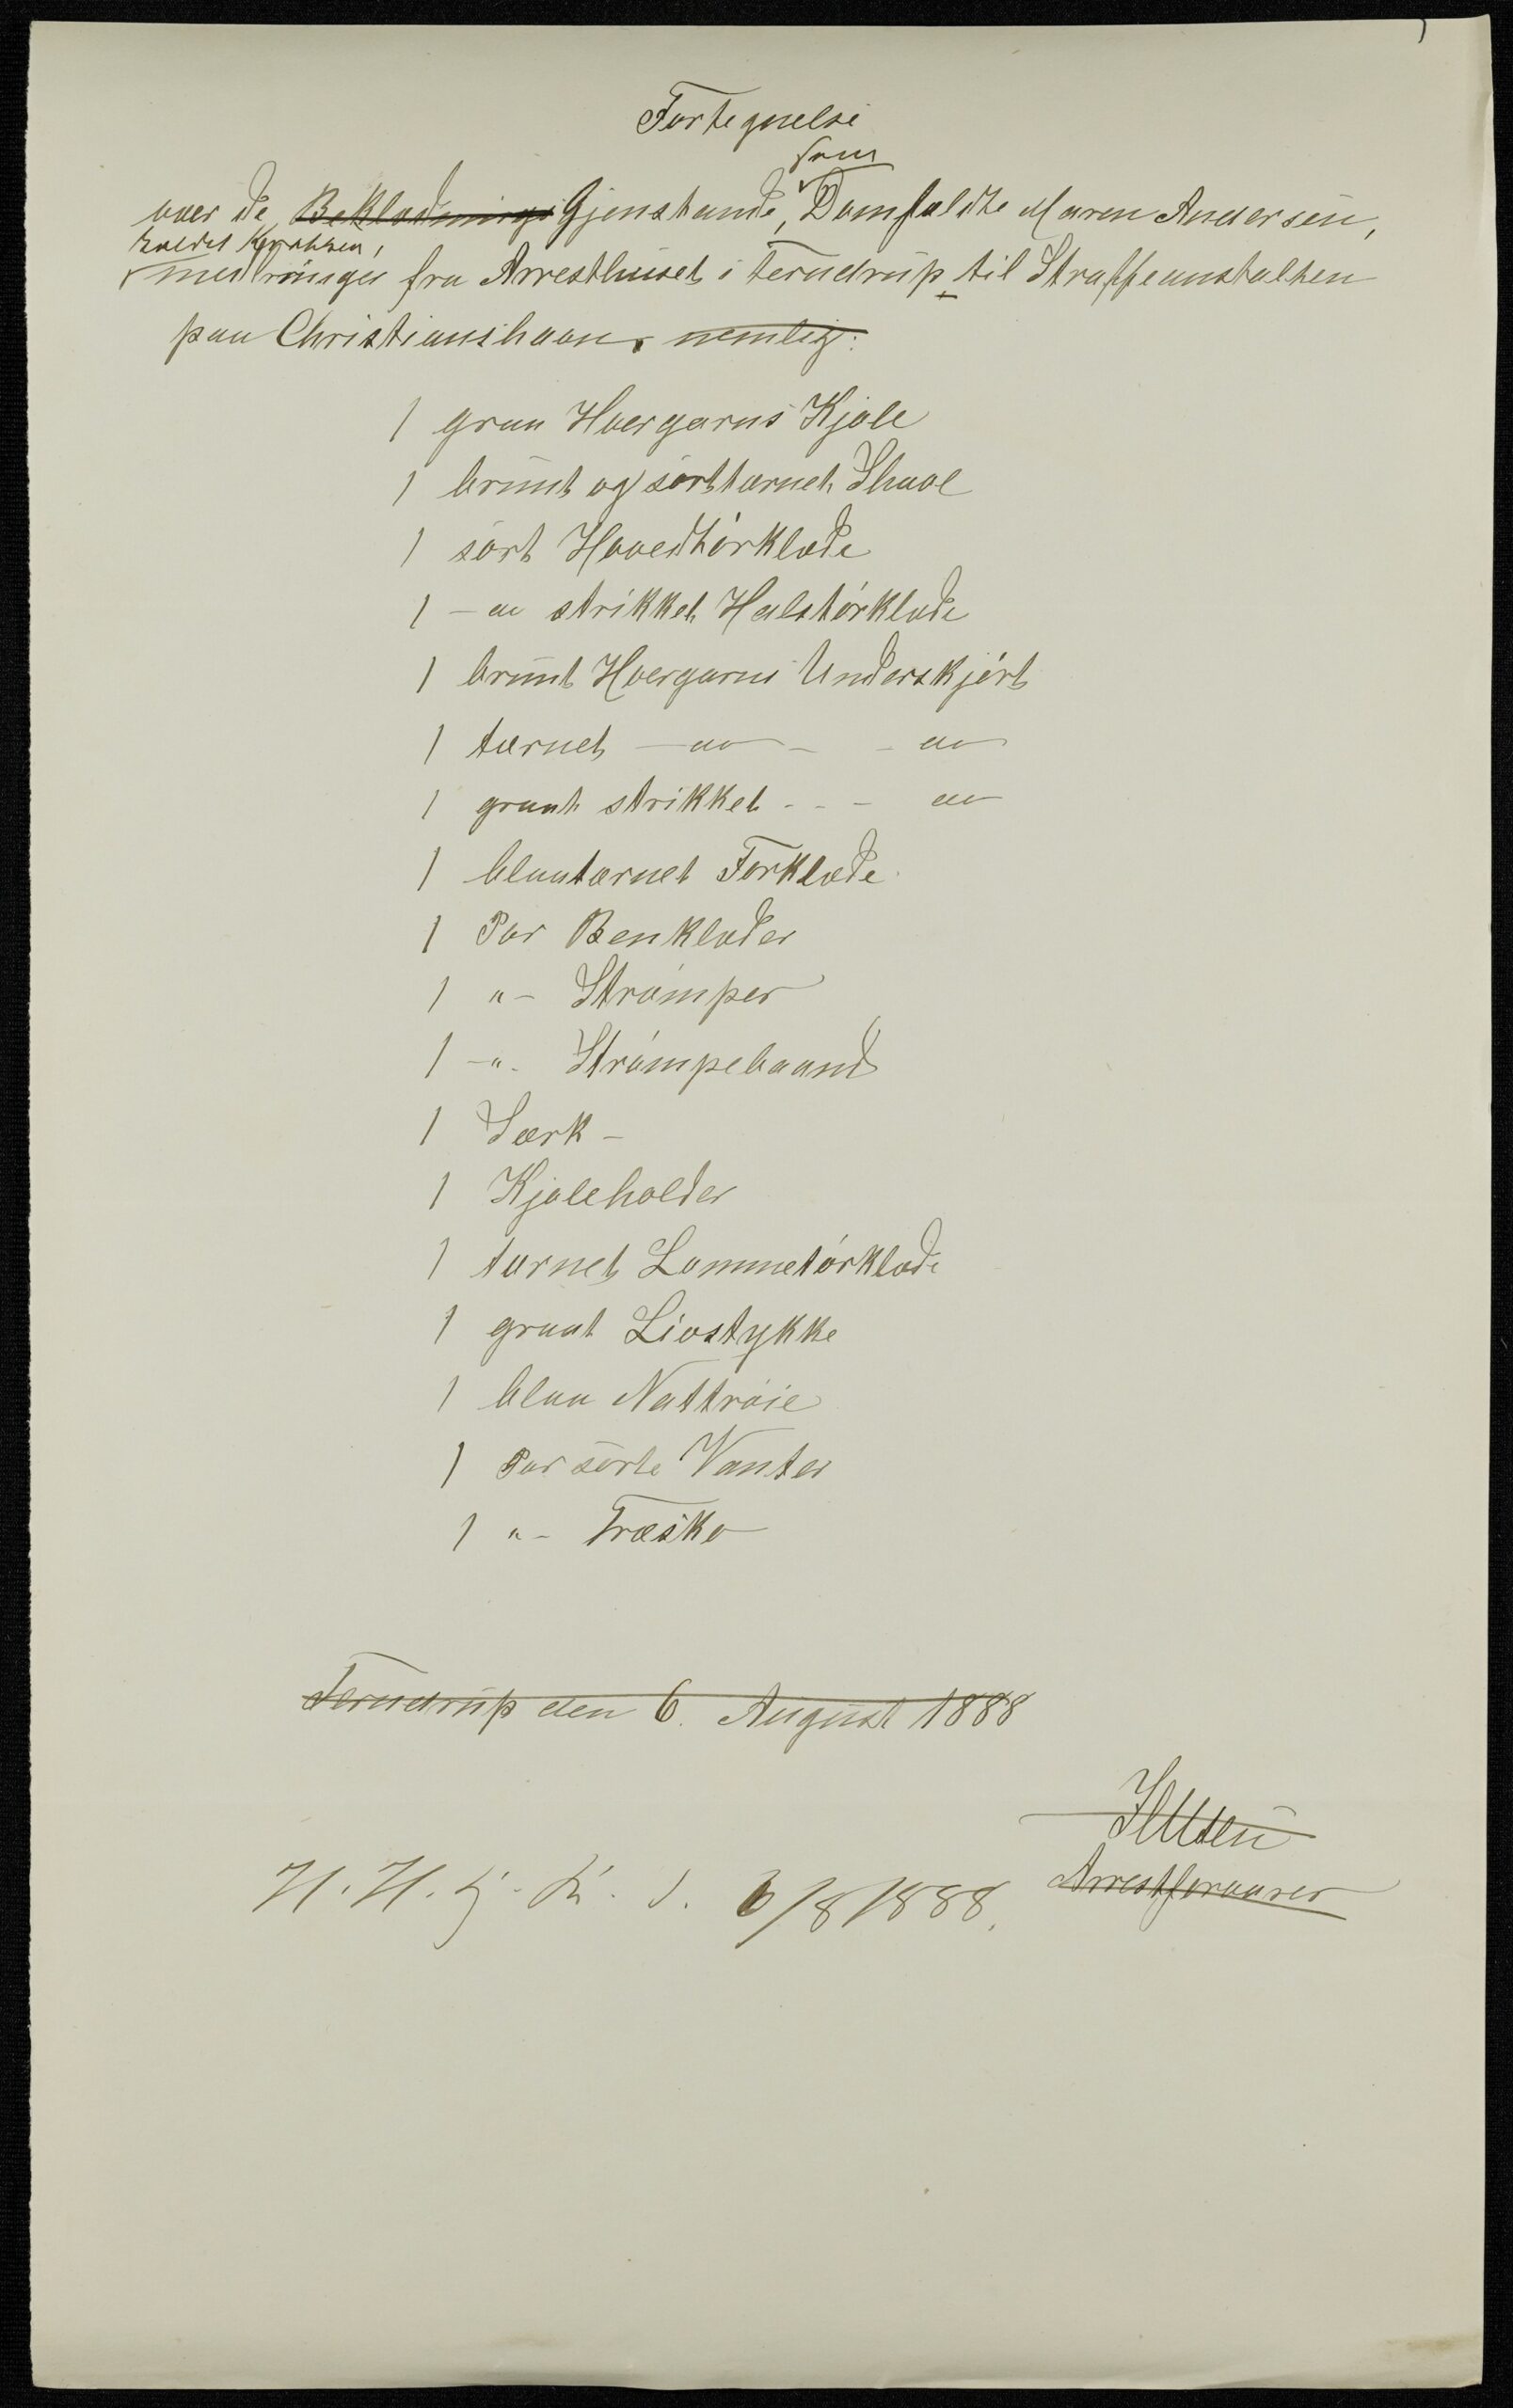 Fortegnelse
som
over de Beklædnings Gjenstande, Domfældte Maren Andersen,
kaldet Kjørtzen,
medbringer fra Arresthuset i Terndrup til Straffeanstalten
paa Christianshavn, nemlig:
1 graa Hvergarns Kjole
1 brunt og sort tærnet Shavl
1 sort Hovedtørklæde
1 - do strikket Halstørklæde
1 brunt Hvergarns Underskjørt
1 tærnet - do - - do
1 graat strikket - - - do
1 blaatærnet Forklæde
1 Par Benklæder
1 " - Strømper
1 - " - Strømpebaand
1 Særk -
1 Kjoleholder
1 tærnet Lommetørklæde
1 graat Livstykke
1 blaa Nattrøie
1 Par sorte Vanter
1 " - Træsko
Terndrup den 6. August 1888
Arrestforvarer
H. H. 6/8 1888.